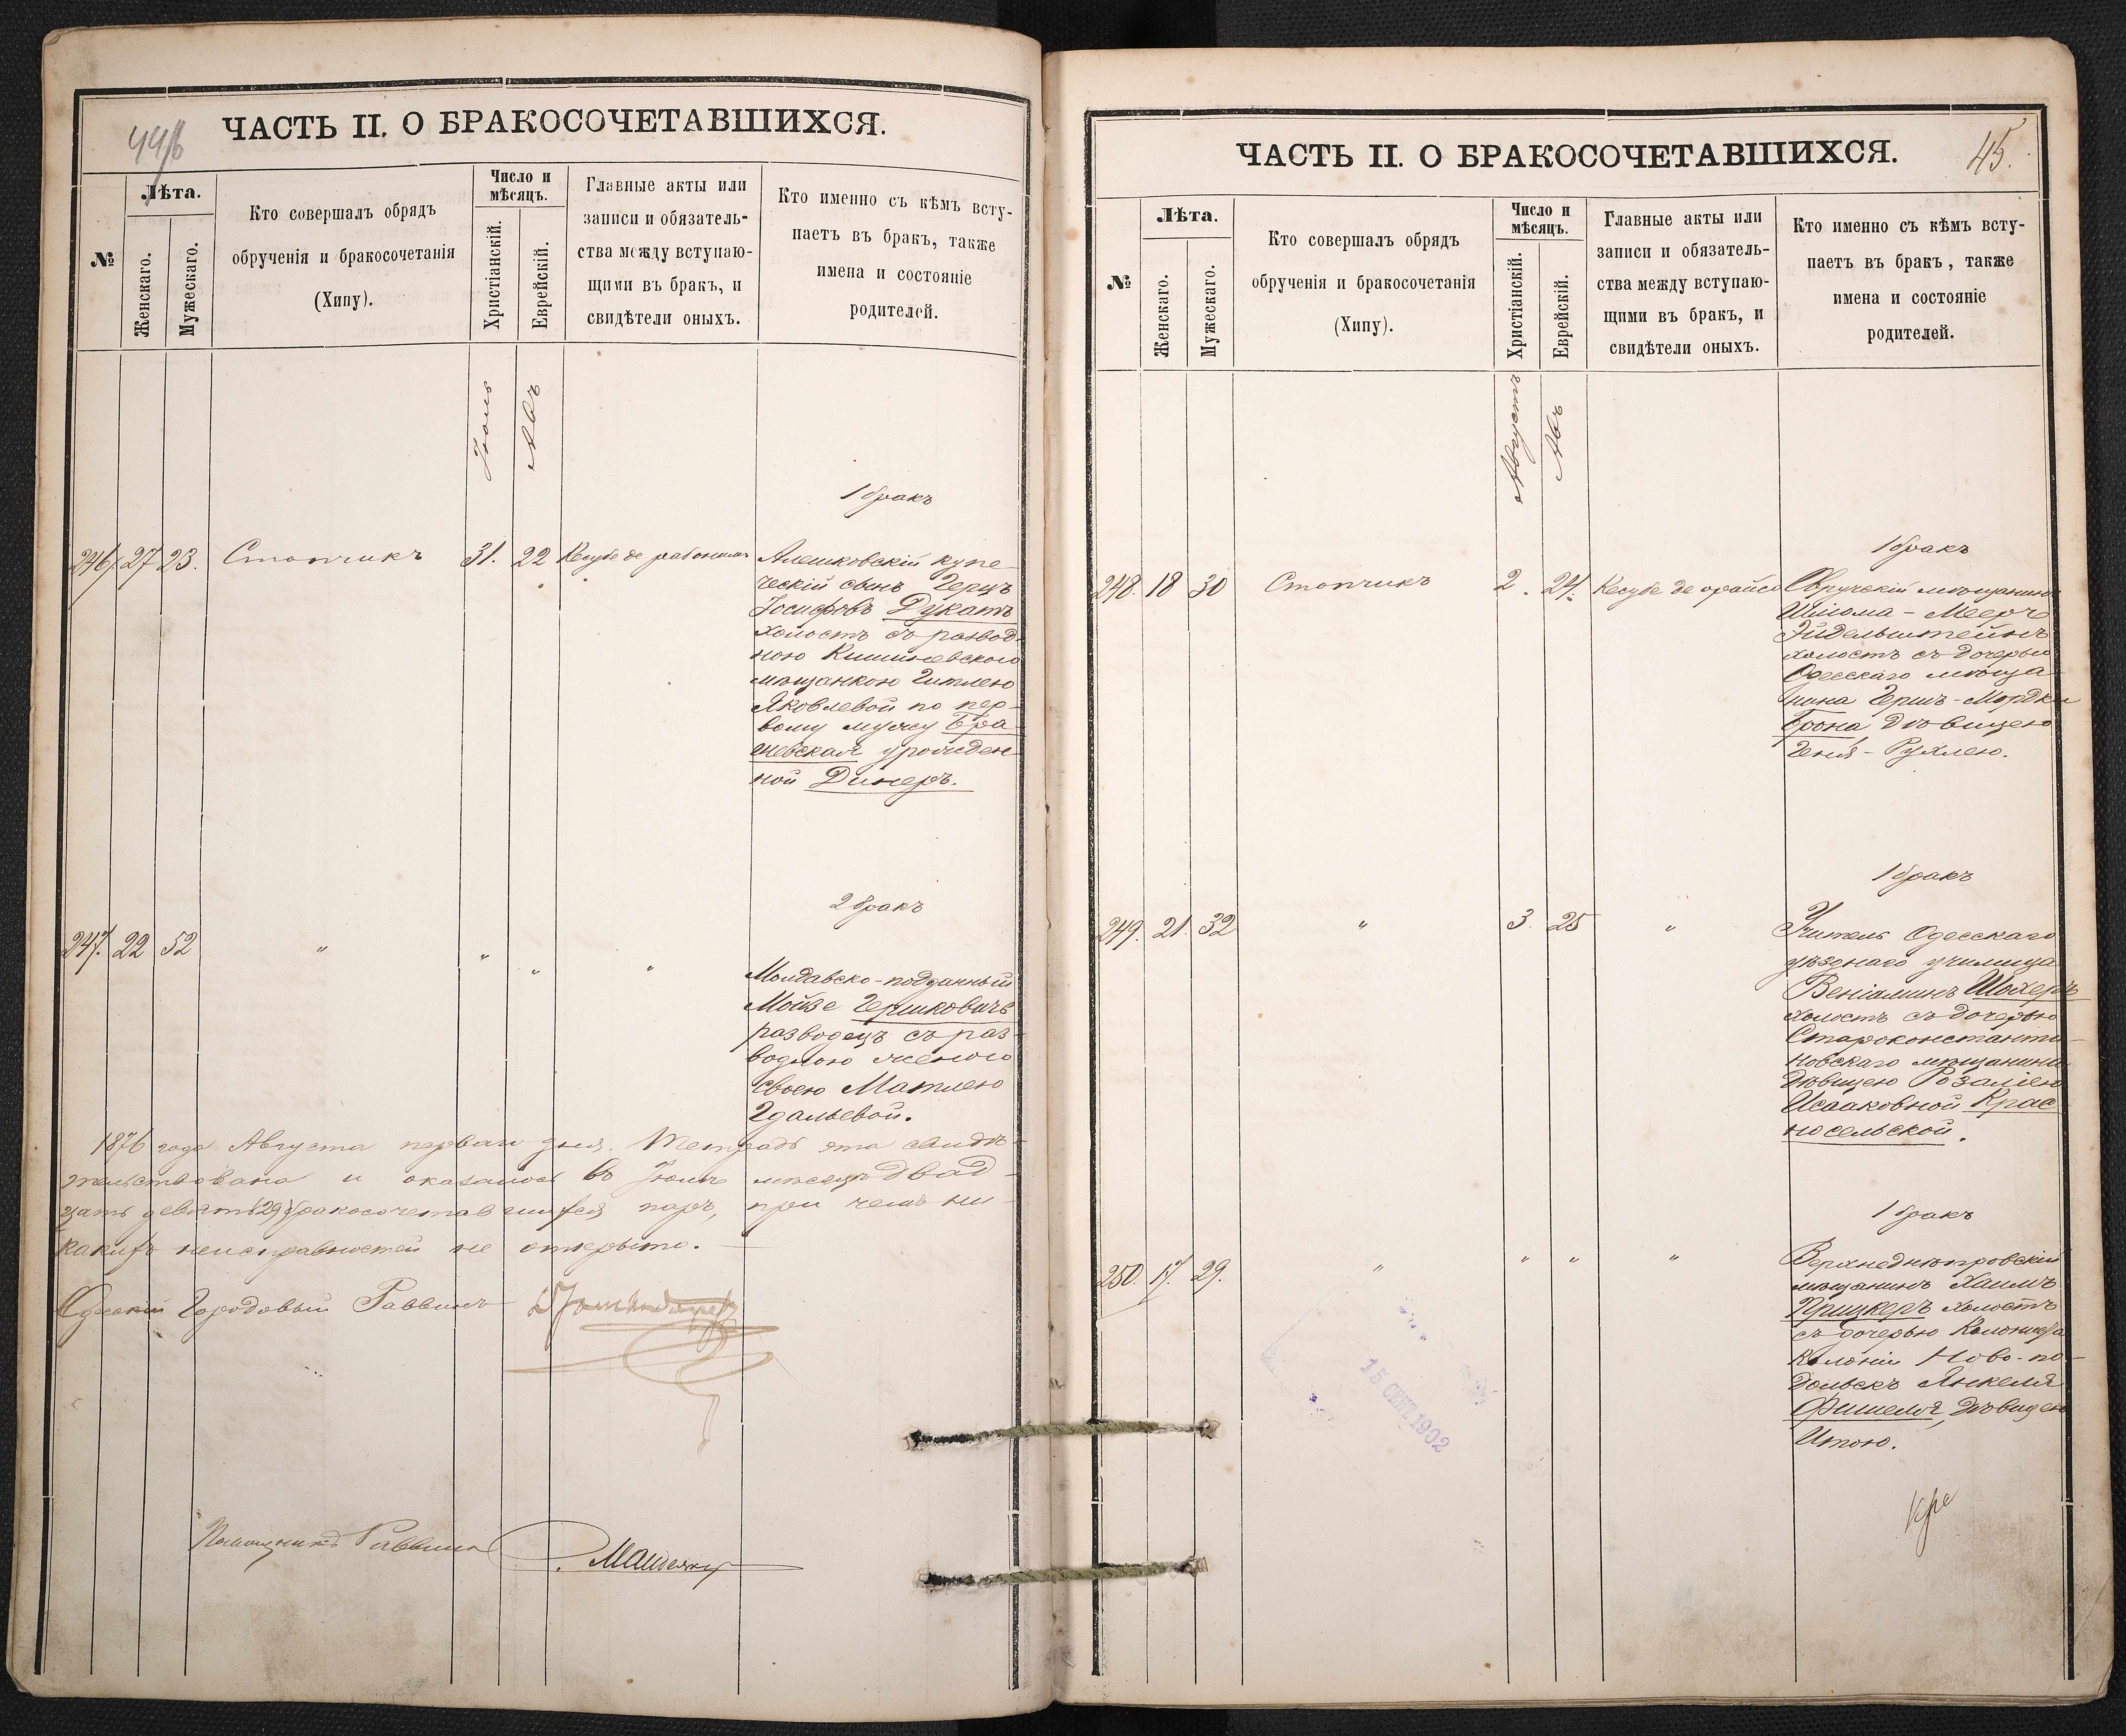 44/б
ЧАСТЬ II. О БРАКОСОЧЕТАВШИХСЯ.
№
Лѣта.
Женскаго.
Мужескаго.
Кто совершалъ обрядъ
обрученія и бракосочетанія
(Хипу).
Число и
мѣсяцъ.
Христіанскій.
Еврейскій.
Главные акты или
записи и обязатель-
ства между вступаю-
щими въ бракъ, и
свидѣтели оныхъ.
Кто именно съ кѣмъ всту-
паетъ въ бракъ, также
имена и состояніе
родителей.
Іюль
Авъ
1 бракъ
246. 27 23. Стопчикъ 31. 22 Кесубе де рабонимъ
Алешковскій купе-
ческій сынъ Герцъ
Іосифовъ Дукатъ
холостъ съ развод-
ною Кишиневскою
мѣщанкою Гитлею
Яковлевой по пер-
вому мужу Бра-
невская урожден-
ной Динеръ.
2 бракъ
247. 22 52 " " " "
Молдавско-подданный
Мойзе Гершковичъ
разводецъ съ раз-
водною женою
своею Матлею
Гдальевой.
1876 года Августа перваго дня. Тетрадь эта свидѣ-
тельствована и оказалось въ Іюлѣ мѣсяцѣ двад-
цать девять (29) бракосочетавшихся паръ, при чемъ ни-
какихъ неисправностей не открыто.
Одесскій Городовый Раввинъ
Помощникъ Раввина
ЧАСТЬ II. О БРАКОСОЧЕТАВШИХСЯ.
45.
№
Лѣта.
Женскаго.
Мужескаго.
Кто совершалъ обрядъ
обрученія и бракосочетанія
(Хипу).
Число и
мѣсяцъ.
Христіанскій.
Еврейскій.
Главные акты или
записи и обязатель-
ства между вступаю-
щими въ бракъ, и
свидѣтели оныхъ.
Кто именно съ кѣмъ всту-
паетъ въ бракъ, также
имена и состояніе
родителей.
Августъ
Авъ
1 бракъ
248. 18 30 Стопчикъ 2. 24. Кесубе де орайсо
Овручскій мѣщанинъ
Шлиома-Мееръ
Эйдельштейнъ
холостъ съ дочерью
Одесскаго мѣща
нина Герш-Мордки
Брона дѣвицею
Геня-Рухлею.
1 бракъ
249. 21. 32 " 3. 25 "
Учитель Одесскаго
уѣзднаго училища
Веніаминъ Шохеръ
холостъ съ дочерью
Староконстанти-
новскаго мѣщанина
дѣвицею Розаліею
Исааковной Крас
носельской.
1 бракъ
250. 17. 29. " " " "
Верхнеднѣпровскій
мѣщанинъ Хаимъ
Прицкеръ холостъ
съ дочерью Колониста
Колоніи Ново-по-
дольскъ Янкеля
Фишеля, дѣвицею
Итою.
15 СЕНТ. 1902